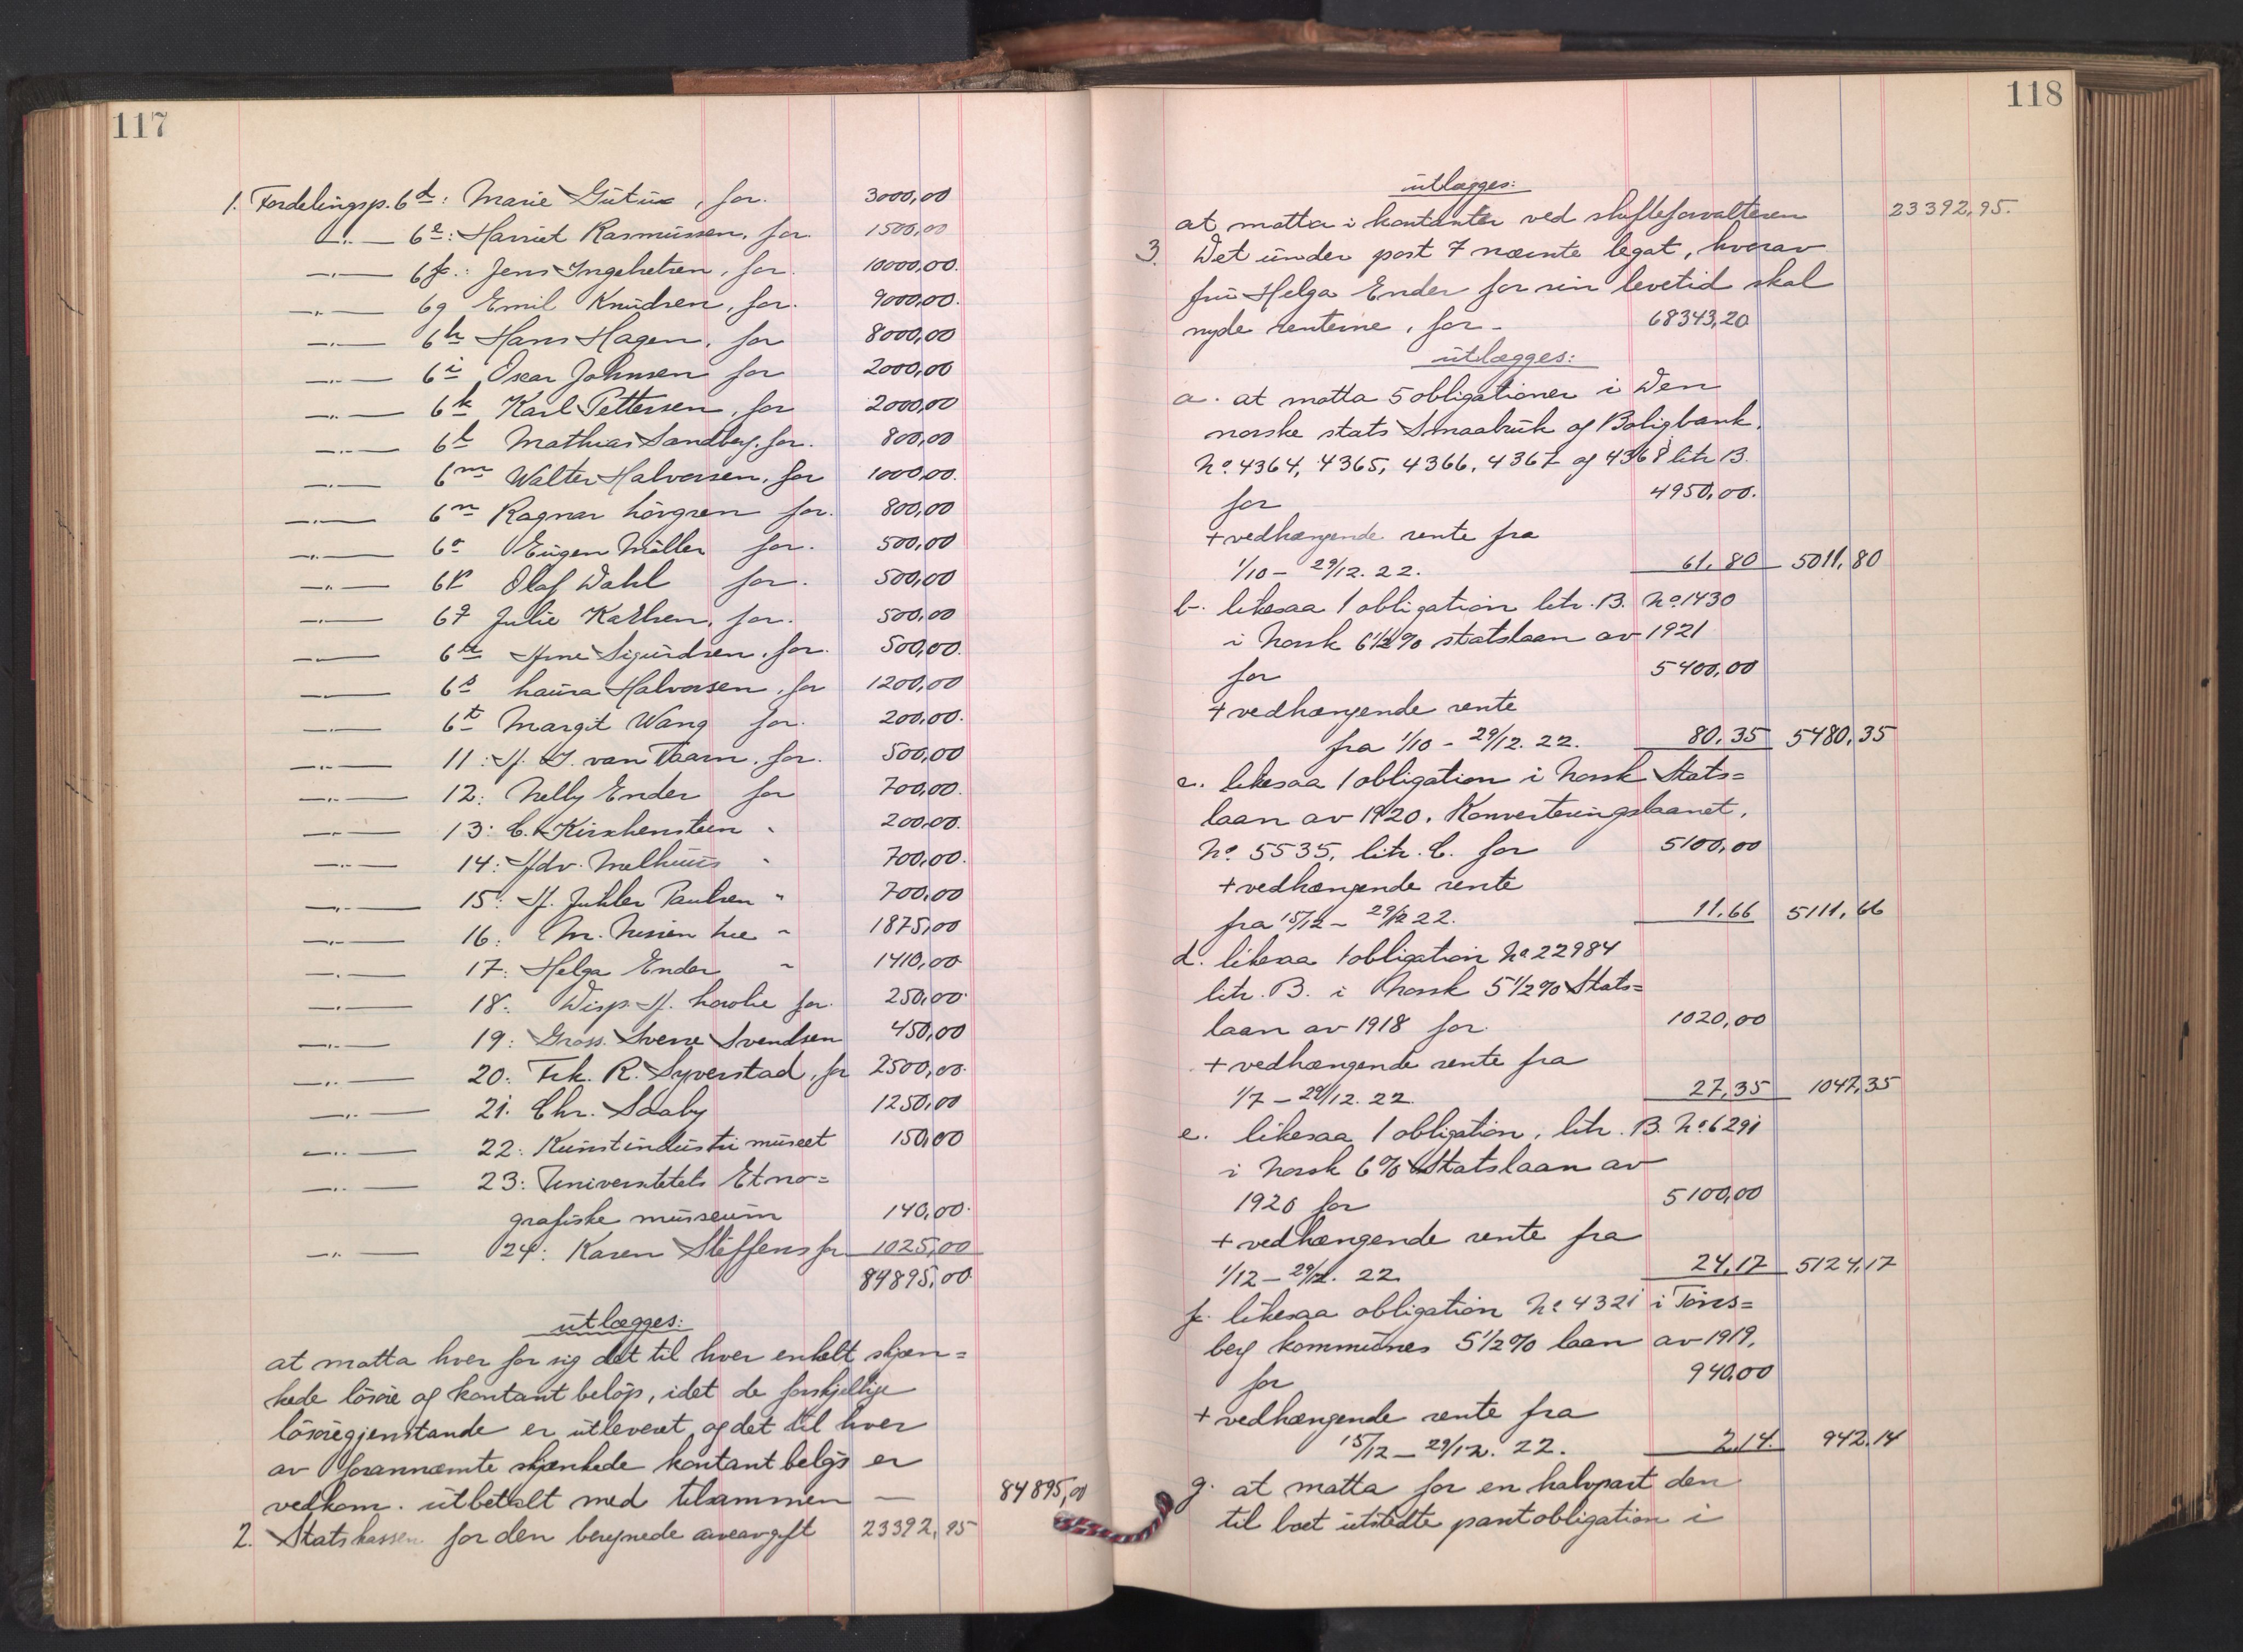 117
1. Fordelingsp. 6d: Marie Gütüx, for. 3000,00
—„— 6e: Harriet Rasmüssen, for. 1500,00
—„— 6f.: Jens Ingebretsen, for. 10000,00.
—„— 6g Emil Knüdsen, for. 9000,00.
—„— 6h Hans Hagen, for 8000,00
—„— 6i Oscar Johnsen for 2000,00
—„— 6k Karl Pettersen, for 2000,00
—„— 6l Mathias Sandberg, for. 800,00
—„— 6m Walter Halvorsen, for 1000,00.
—„— 6n Ragnar Lövgren for. 800,00
—„— 6o Eügen Müller for. 500,00
—„— 6p Olaf Dahl for. 500,00
—„— 6q Julie Karlsen, for. 500,00
—„— 6r Arne Sigürdsen, for. 500,00.
—„— 6s Laüra Halvorsen, for 1200,00
—„— 6t Margit Wang for. 200,00.
—„— 11: A. I. van Baarn, for. 500,00
—„— 12: Nelly Ender for 700,00.
—„— 13: C. Kirschenstein „ 200,00.
—„— 14: Adv. Melhüüs „ 700,00.
—„— 15: A. Juhler Paulsen „ 700,00
—„— 16: M. Nissen Lie „ 1875,00
—„— 17: Helga Ender „ 1410,00
—„— 18: Disp. A. Lovlie for. 250,00
—„— 19: Gross. Sverre Svendsen 450,00
—„— 20: Frk. R. Syverstad, for 2500,00.
—„— 21. Chr. Saaby 1250,00
—„— 22: Künstindüstri müseet 150,00
—„— 23: Universitetets Etno=
grafiske müseüm 140,00.
—„— 24: Karen Steffens for 1025,00
84895,00
ütlægges:
at motta hver for sig det til hver enkelt skjæn=
kede lösöre og kontant belöp, idet de forskjellige
lösöregjenstande er ütleveret og det til hver
av forannævnte skjænkede kontant belöp er
vedkom. ütbetalt med tilsammen — 84895,00
2. Statskassen for den beregnede arveavgift 23392,95
118
ütlægges:
at motta i kontanter ved skifteforvalteren 23392,95.
3. Det ünder post 7 nævnte legat, hvorav
frü Helga Ender for sin levetid skal
nyde renterne, for - 68343,20
ütlægges:
a. at motta 5 obligationer i Den
norske stats Smaabrük og Boligbank.
No. 4364, 4365, 4366, 4367 og 4368 litr B.
for 4950,00.
+ vedhængende rente fra
1/10 - 29/12. 22. 61,80 5011,80
b. likesaa 1 obligation litr. B. No. 1430
i Norsk 6 1/2 % statslaan av 1921
for 5400,00
+ vedhængende rente
fra 1/10 - 29/12. 22. 80,35 5480,35
c. likesaa 1 obligation i Norsk Stats=
laan av 1920, Konverteringslaanet,
No. 5535, litr. C. for 5100,00
+ vedhængende rente
fra 15/12 - 29/12 22. 11,66 5111,66
d. likesaa 1 obligation No 22984
litr. B. i Norsk 5 1/2 % Stats=
laan av 1918 for. 1020,00
+ vedhængende rente fra
1/7 - 29/12. 22. 27,35 1047,35
e. likesaa 1 obligation, litr. B. No 6291
i Norsk 6% Statslaan av
1920 for 5100,00
+ vedhængende rente fra
1/12 - 29/12. 22 24,17 5124,17
f. likesaa obligation No 4321 i Töns=
berg kommünes 5 1/2 % laan av 1919,
for 940,00
+ vedhængende rente fra
15/12 - 29/12. 22. 2,14. 942,14
g. at motta for en halvpart den
til boet ütstedte pantobligation i